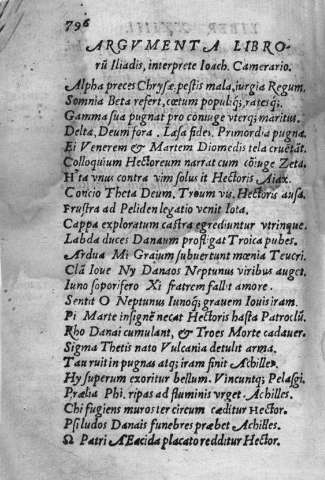 796
ARGVMENTA LIBRO-
rũ Iliadis, interprete Ioach. Camerario.
Alpha preces Chrysæ, pestis mala, iurgia Regum.
Somnia Beta refert, cœtum populiq;, ratesq;.
Gamma sua pugnat pro coniuge vterq; maritus.
Delta. Deum fora. Læsa fides. Primordia pugnæ.
Ei Venerem & Martem Diomedis tela cruẽtãt.
Colloquium Hectoreum narrat cum cõiuge Zeta.
Hta vnus contra vim solus it Hectoris Aiax.
Concio Theta Deum. Troum vis. Hectoris ausa.
Frustra ad Peliden legatio venit Iota.
Cappa exploratum castra egrediuntur vtrinque.
Labda duces Danaum profligat Troica pubes.
Ardua Mi Graium subuertunt mœnia Teucri.
Clã Ioue Ny Danaos Neptunus viribus auget.
Iuno soporifero Xi fratrem fallit amore.
Sentit O Neptunus Iunoq; grauem Iouis iram.
Pi Marte insignẽ necat Hectoris hasta Patroclũ.
Rho Danai cumulant, & Troes Morte cadauer.
Sigma Thetis nato Vulcania detulit arma.
Tau ruit in pugnas atq; iram finit Achilles.
Hy superum exoritur bellum. Vincuntq; Pelasgi.
Prælia Phi. ripas ad fluminis vrget. Achilles.
Chi fugiens muros ter circum cæditur Hector.
Psi ludos Danais funebres præbet Achilles.
Ω Patri Æacida placato redditur Hector.